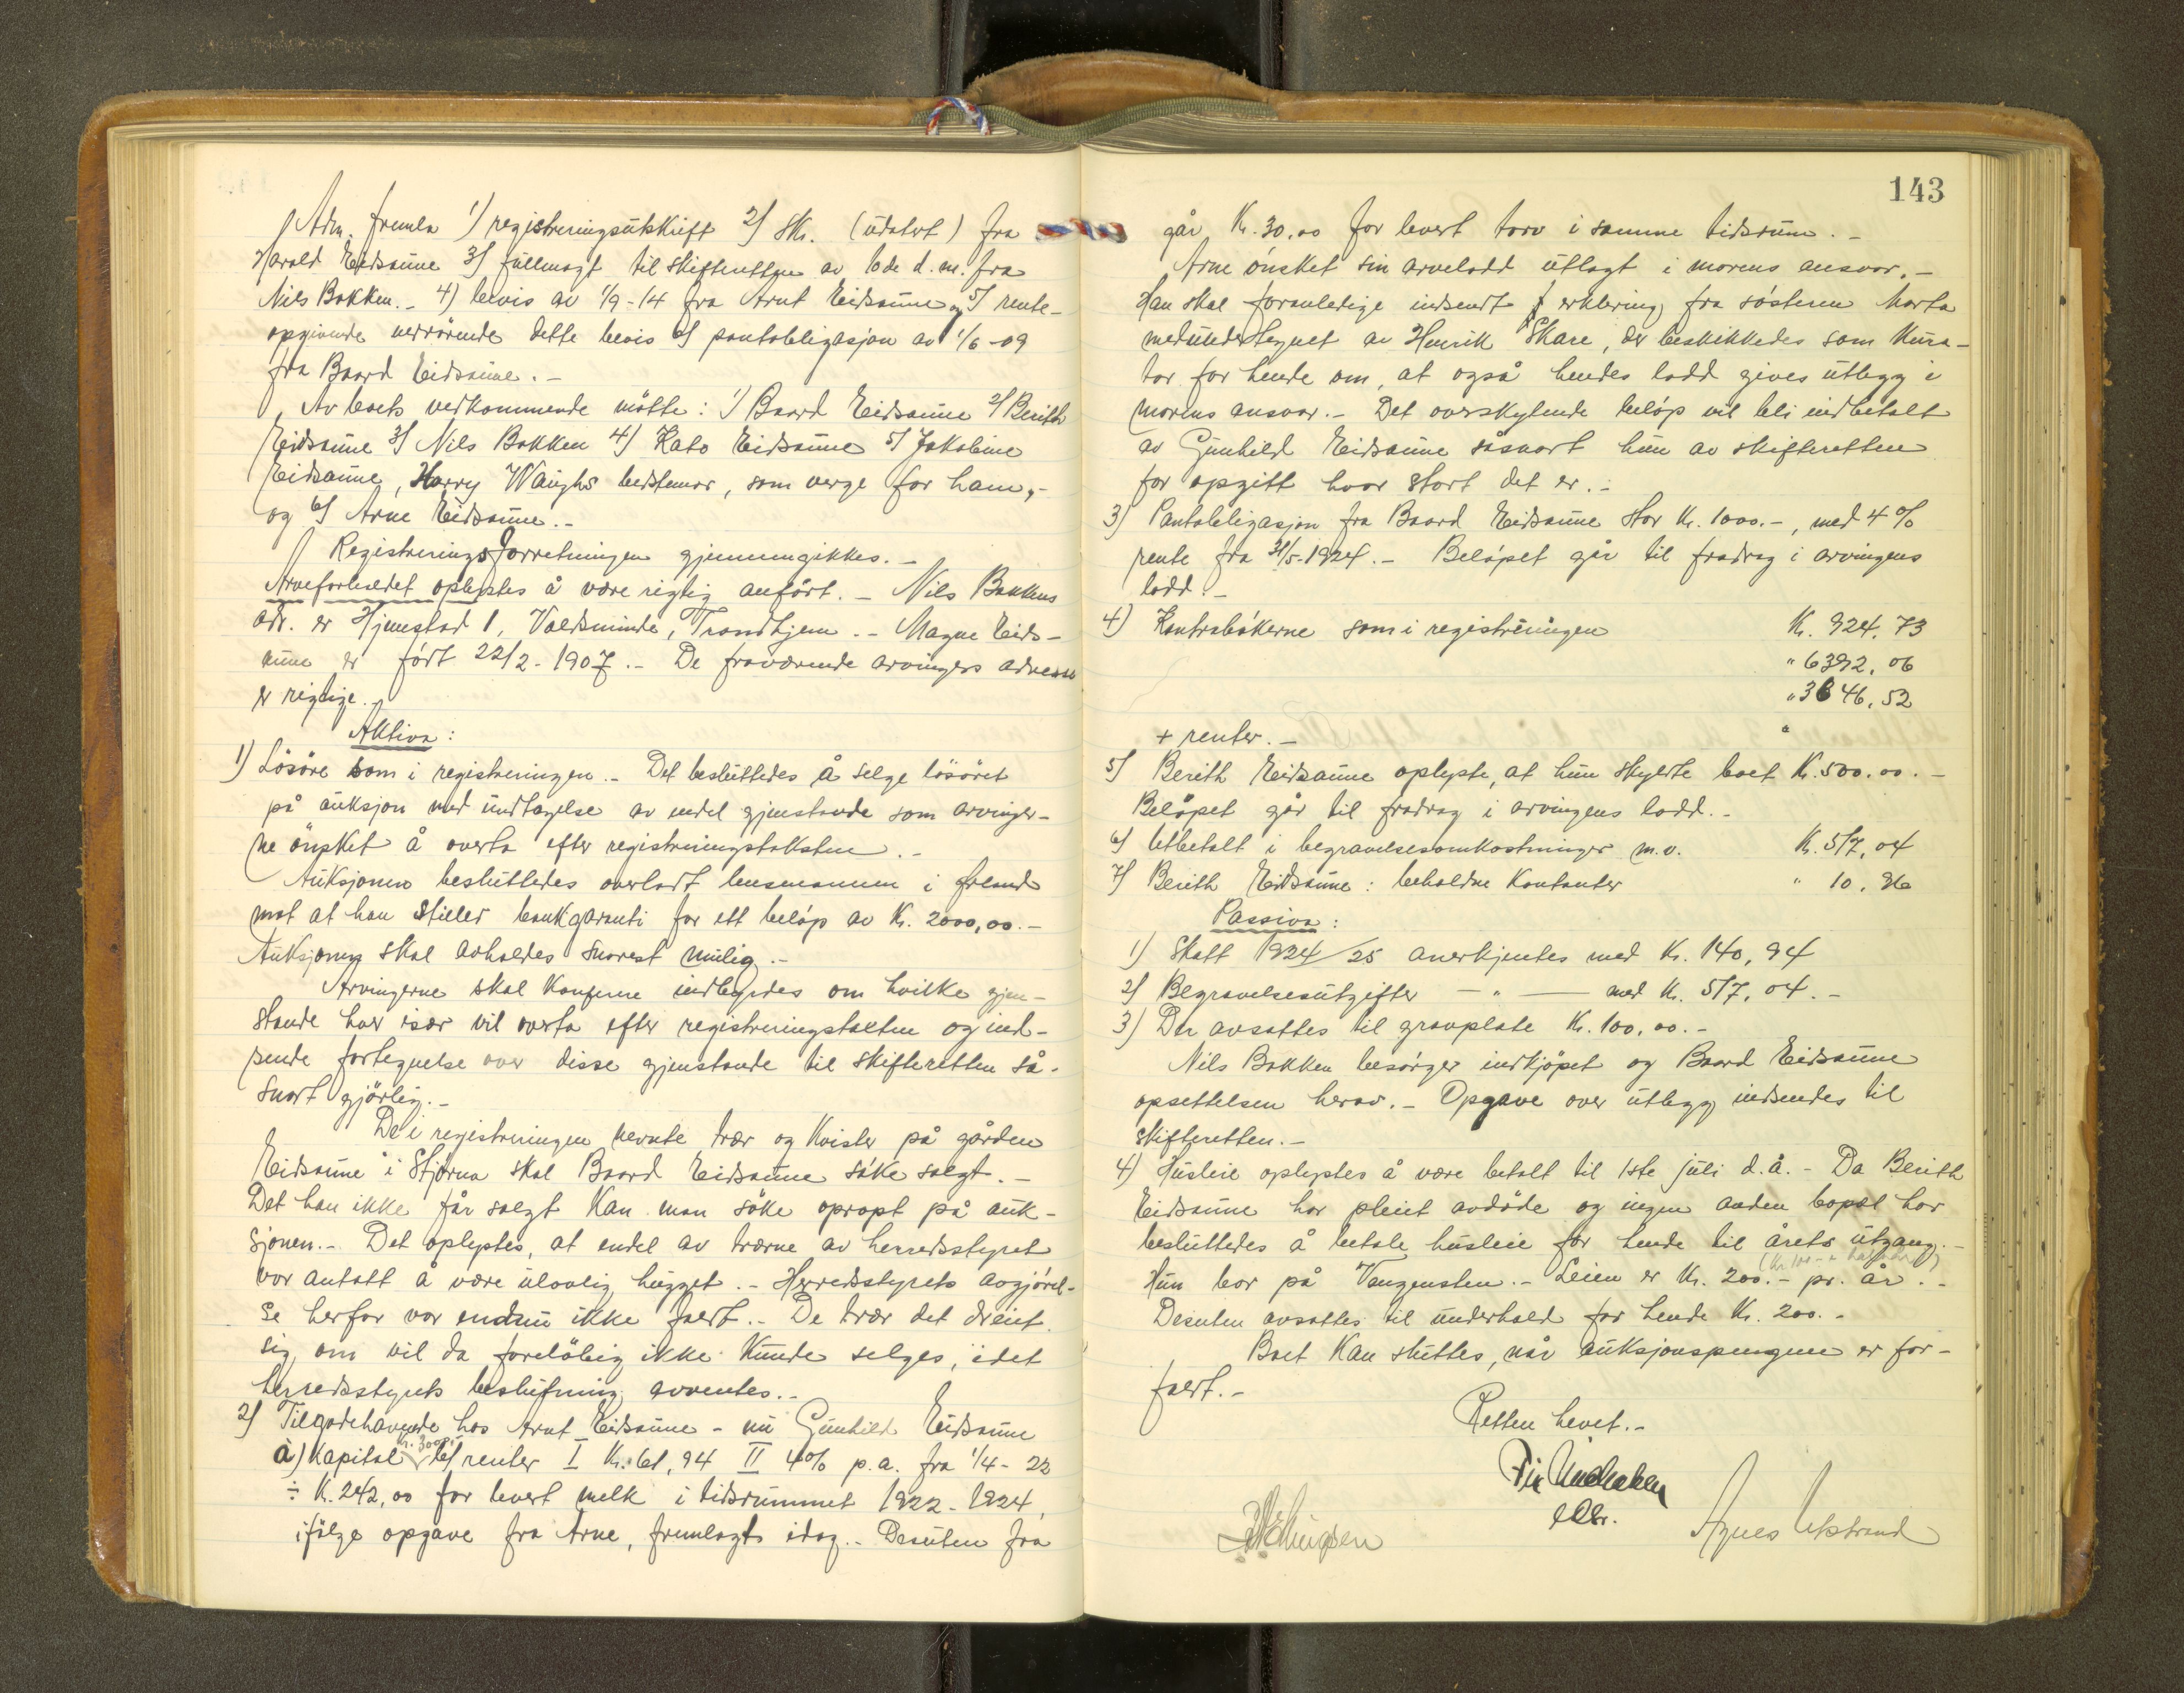 Adm. fremla 1) registreringsutskrift 2) skr. (udatert) fra
Harald Eidsaune 3) fullmagt til skifteretten av 10de d.m. fra
Nils Bakken. - 4) bevis av 1/9-14 fra Arnt Eidsaune og 5) rente-
opgivende vedrørende dette bevis 6) pantobligasjon av 1/6-09
fra Baard Eidsaune. -
Av boets vedkommende møtte: 1) Baard Eidsaune 2) Berith
Eidsaune 3) Nils Bakken 4) Kato Eidsaune 5) Jakobine
Eidsaune, Harry Waughs bedstemor, som verge for ham, -
og 6) Arne Eidsaune. -
Registreringsforretningen gjennemgikkes. -
Arveforholdet oplystes å være rigtig anført. - Nils Bakkens
adr. er Hjemstad 1, Voldsminde, Trondhjem. - Magne Eids-
aune er født 22/2-1907. - De fraværende arvingers adresse
er rigtige. -
Aktiva:
1) Løsøre som i registreringen. - Det besluttedes å selge løsøret
på auksjon med undtagelse av endel gjenstande som arvinger-
ne ønsket å overta efter registreringstaksten. -
Auksjonen besluttedes overlatt lensmannen i
mot at han stiller bankgaranti for ett beløp av Kr. 2000,00. -
Auksjonen skal avholdes snarest mulig. -
Arvingerne skal konferere indbyrdes om hvilke gjen-
stande hver især vil overta efter registreringstaksten og ind-
sende fortegnelse over disse gjenstande til skifteretten så-
snart gjørlig. -
De i registreringen nevnte trær og kvister på gården
"Eidsaune" i Stjørna skal Baard Eidsaune søke solgt. -
Det han ikke får solgt kan man søke opropt på auk-
sjonen. - Det oplystes, at endel av trærne av herredsstyret
var antatt å være ulovlig hugget. - Herredsstyrets avgjørel-
se herfor var endnu ikke faldt. - De trær det dreiet
sig om vil da foreløbig ikke kunde selges, idet
herredsstyrets beslutning avventes. -
2) Tilgodehavende hos Arnt Eidsaune - nu Gunhild Eidsaune
a) Kapital kr. 300,- b) renter I Kr. 61,94 II 4% p.a. fra 1/4-22
÷ Kr. 242,00 for levert melk i tidsrummet 1922-1924,
ifølge opgave fra Arne, fremlagt idag. - Desuten fra
143
går Kr. 30,00 for levert torv i samme tidsrum. -
Arne ønsket sin arvelodd utlagt i morens ansvar. -
Han skal foranledige indsendt erklering fra søsteren Marta
medundertegnet av Henrik Skare, der beskikkedes som kura-
tor for hende om, at også hendes lodd gives utlegg i
morens ansvar. - Det overskytende beløp vil bli indbetalt
av Gunhild Eidsaune såsnart hun av skifteretten
for opgitt hvor stort det er. -
3) Pantobligasjon fra Baard Eidsaune stor Kr. 1000.-, med 4%
rente fra 31/5-1924. - Beløpet går til fradrag i arvingens
lodd. -
4) Kontrabøkerne som i registreringen Kr. 924,73
" 6392,06
" 3646,52
+ renter. - "
5) Berith Eidsaune oplyste, at hun skyldte boet Kr. 500.00. -
Beløpet går til fradrag i arvingens lodd. -
6) Utbetalt i begravelsesomkostninger m.v. Kr. 517,04
7) Berith Eidsaune: beholdne kontanter " 10,36
Passiva:
1) Skatt 1924/25 anerkjentes med Kr. 140,94
2) Begravelsesutgifter - " - med Kr. 517,04. -
3) Der avsattes til gravplate Kr. 100,00. -
Nils Bakken besørger indkjøpet og Baard Eidsaune
opsettelsen herav. - Opgave over utlegg indsendes til
skifteretten. -
4) Husleie oplystes å være betalt til 1ste juli d.å. - Da Berith
Eidsaune har pleiet avdøde og ingen anden bopel har
besluttedes å betale husleie for hende til årets utgang. -
(Kr. 100.- a halvår)
Hun bor på Vangensten. - Leien er Kr. 200.- pr. år. -
Desuten avsattes til underhold for hende Kr. 200. -
Boet kan sluttes, når auksjonspengene er for-
faldt. -
Retten hevet. -
Agnes Utstrand